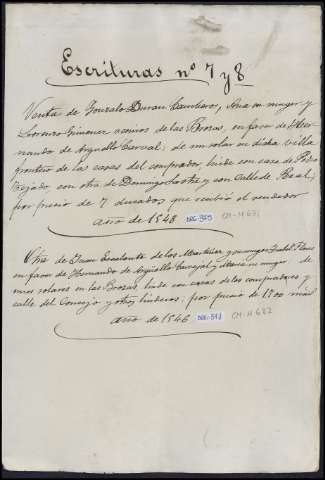 Escrituras nº 7 y 8
Venta de Gonzalo Duran Cambero, Ana su muger y
Lorenzo Gimenez vecinos de las Brozas, en favor de Her-
nando de Argüello Carvajal; de un solar en dicha villa
frontero de las casas del comprador, linde con casa de Pedro
Trejado, con otra de Domingo y con Calle de Real,
por precio de 7 ducados que recibió el vendedor
año de 1548 CM-4631
Otra de Juan Escalante de los y su muger Isabel Flores
en favor de Hernando de Argüello Carvajal y su muger de
unos solares en las Brozas, linde con casas de los compradores y
calle del Concejo y otros linderos; por precio de 1700 mrs
año de 1546